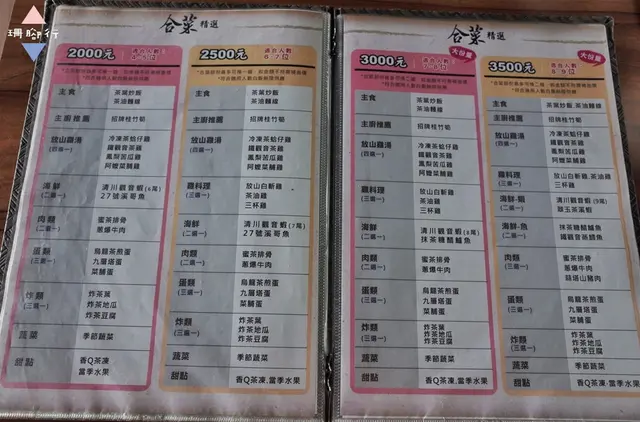 珊腳行
合菜 精選
2000元
適合人數
4-5位
主食
茶葉炒飯
茶油麵線
主廚推薦
招牌桂竹筍
放山雞湯
(四選一)
冷凍茶蛤仔雞
鐵觀音茶雞
鳳梨苦瓜雞
阿嬤菜脯雞
海鮮
(二選一)
清川觀音蝦(6尾)
27號溪哥魚
肉類
(二選一)
蜜茶排骨
蔥爆牛肉
蛋類
(三選一)
烏龍茶煎蛋
九層塔蛋
菜脯蛋
炸類
(三選一)
炸茶葉
炸茶地瓜
炸茶豆腐
蔬菜
季節蔬菜
甜點
香Q茶凍
當季水果
2500元
適合人數
6-7位
主食
茶葉炒飯
茶油麵線
主廚推薦
招牌桂竹筍
放山雞湯
(四選一)
冷凍茶蛤仔雞
鐵觀音茶雞
鳳梨苦瓜雞
阿嬤菜脯雞
雞料理
(三選一)
放山白斬雞
茶油雞
三杯雞
海鮮
(二選一)
清川觀音蝦(7尾)
27號溪哥魚
肉類
(二選一)
蜜茶排骨
蔥爆牛肉
蛋類
(三選一)
烏龍茶煎蛋
九層塔蛋
菜脯蛋
炸類
(三選一)
炸茶葉
炸茶地瓜
炸茶豆腐
蔬菜
季節蔬菜
甜點
香Q茶凍,當季水果
合菜 精選
3000元
大份量
適合人數
主食
茶葉炒飯
茶油麵線
主廚推薦
招牌桂竹筍
放山雞湯
(四選一)
冷凍茶蛤仔雞
鐵觀音茶雞
鳳梨苦瓜雞
阿嬤菜脯雞
雞料理
(三選一)
放山白斬雞
茶油雞
三杯雞
海鮮
(二選一)
清川觀音蝦(8尾)
抹茶糖醋鱸魚
肉類
(二選一)
蜜茶排骨
蔥爆牛肉
蛋類
(三選一)
烏龍茶煎蛋
九層塔蛋
菜脯蛋
炸類
(三選一)
炸茶葉
炸茶地瓜
炸茶豆腐
蔬菜
季節蔬菜
甜點
香Q茶凍,當季水果
3500元
大份量
適合人數
8-9位
主食
茶葉炒飯 茶油麵線
主廚推薦
招牌桂竹筍
放山雞湯
(四選一)
冷凍茶蛤仔雞
鐵觀音茶雞
鳳梨苦瓜雞
阿嬤菜脯雞
雞料理
(三選一)
放山白斬雞
茶油雞
三杯雞
海鮮-蝦
(二選一)
清川觀音蝦(9尾)
翠玉茶溪蝦
海鮮-魚
(二選一)
抹茶糖醋鱸魚
鐵觀音蒸鯛魚
肉類
(三選一)
蜜茶排骨
蔥爆牛肉
蒜塔山豬肉
蛋類
(三選一)
烏龍茶煎蛋
九層塔蛋
菜脯蛋
炸類
(三選一)
炸茶葉
炸茶地瓜
炸茶豆腐
蔬菜
季節蔬菜
甜點
香Q茶凍,當季水果